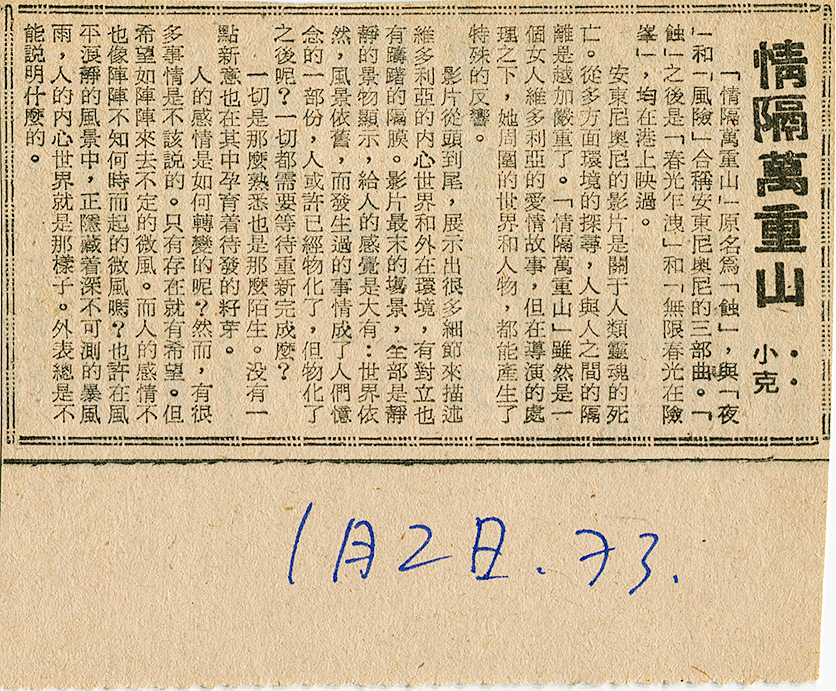 情隔萬重山
‧‧小克
「情隔萬重山」原名爲「蝕」,與「夜
」和「風險」合稱安東尼奧尼的三部曲。「
蝕」之後是「春光乍洩」和「無限春光在險
峯」,均在港上映過。
安東尼奧尼的影片是關于人類靈魂的死
亡。從多方面環境的探尋,人與人之間的隔
離是越加嚴重了。「情隔萬重山」雖然是一
個女人維多利亞的愛情故事,但在導演的處
理之下,她周圍的世界和人物,都能產生了
特殊的反響。
影片從頭到尾,展示出很多細節來描述
維多利亞的內心世界和外在環境,有對立也
有躊躇的隔膜。影片最末的場景,全部是靜
靜的景物顯示,給人的感覺是大有:世界依
然,風景依舊,而發生過的事情成了人們憶
念的一部份,人或許已經物化了,但物化了
之後呢?一切都需要等待重新完成麼?
一切是那麼熟悉也是那麼陌生。没有一
點新意也在其中孕育着待發的籽芽。
人的感情是如何轉變的呢?然而,有很
多事情是不該說的。只有存在就有希望。但
希望如陣陣來去不定的微風。而人的感情不
也像陣陣不知何時而起的微風嗎?也許在風
平浪靜的風景中,正隱藏着深不可測的暴風
雨,人的內心世界就是那樣子。外表總是不
能說明什麼的。
1月2日.73.